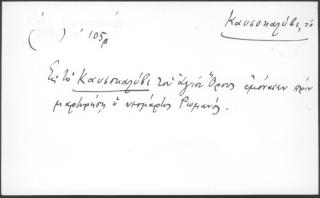 Καυσοκαλύβι, τό
( ) 105β
Εἰς τὸ Καυσοκαλύβι τοῦ Ἁγίου Ὄρους ἐμόνασεν πρὶν
μαρτυρήσῃ ὁ νεομάρτυς Ρωμανός.